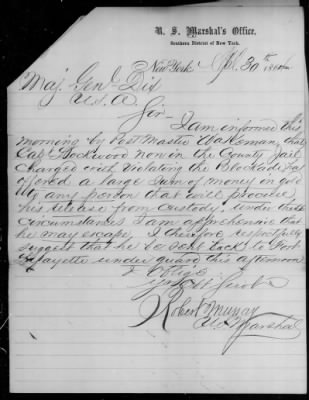 U. S. Marshal's Office,
Southern District of New York.
New York, 30th
Maj. Genl Dix
U.S.A.
Sir
I am informed this
morning by Post Master Wakeman, that
Capt Lockwood now in the County Jail
charged with violating the Blockade has
offered a large sum of money in gold
to any person that will procure
his release from custody. Under these
circumstances I am apprehensive that
he may escape, I therefore respectfully
suggest that he be sent back to Fort
Lafayette under guard this afternoon
Yr Obt Servt
Robert Murray
U.S. Marshal